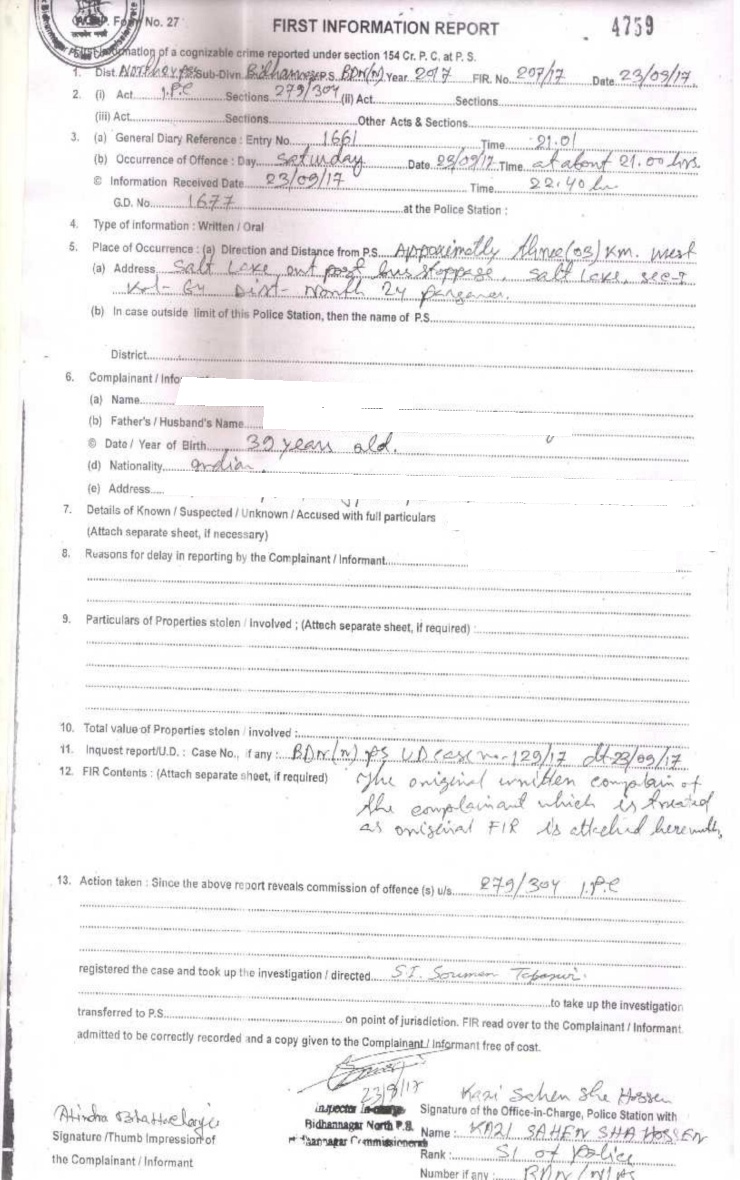 Form No. 27
FIRST INFORMATION REPORT
4759
Information of a cognizable crime reported under section 154 Cr. P. C. at P. S.
1. Dist. Sub-Divn. Bidhannagar P.S. BDN(N) Year 2017 FIR. No. 207/17 Date 23/09/17
2. (i) Act I.P.C Sections 279/304 (ii) Act Sections
(iii) Act Sections Other Acts & Sections
3. (a) General Diary Reference : Entry No. 1661 Time 21.01
(b) Occurrence of Offence : Day Saturday Date 23/09/17 Time at about 21.00 hrs.
© Information Received Date 23/09/17 Time 22.40 hr
G.D. No. 1677 at the Police Station :
4. Type of information : Written / Oral
5. Place of Occurrence : (a) Direction and Distance from P.S. Three (03) Km. West
(a) Address Salt Lake, out post bus stoppage, Salt Lake, sec-I
Kol- 64 Dist- North 24 Parganas.
(b) In case outside limit of this Police Station, then the name of P.S.
District
6. Complainant /
(a) Name
(b) Father's / Husband's Name
© Date / Year of Birth 39 years old.
(d) Nationality Indian.
(e) Address
7. Details of Known / Suspected / Unknown / Accused with full particulars
(Attach separate sheet, if necessary)
8. Reasons for delay in reporting by the Complainant / Informant
9. Particulars of Properties stolen / involved ; (Attech separate sheet, if required) :
10. Total value of Properties stolen / involved :
11. Inquest report/U.D. : Case No., if any : BDN(N) PS UD case no-129/17 dt-23/09/17
12. FIR Contents : (Attach separate sheet, if required) The original written complain of
the complainant which is treated
as original FIR is attached herewith,
13. Action taken : Since the above report reveals commission of offence (s) u/s 279/304 I.P.C
registered the case and took up the investigation / directed S.I. Soumen
to take up the investigation
transferred to P.S. on point of jurisdiction. FIR read over to the Complainant / Informant
admitted to be correctly recorded and a copy given to the Complainant / Informant free of cost.
23/9/17
Inspector In-charge
Bidhannagar North P.S.
Bidhannagar Commissionerate
Kazi Sahen Sha Hossen
Signature of the Office-in-Charge, Police Station with
Name : KAZI SAHEN SHA HOSSEN
Rank : SI of Police
Number if any : BDN (N) PS
Atindra Bhattacharje
Signature /Thumb Impression of
the Complainant / Informant